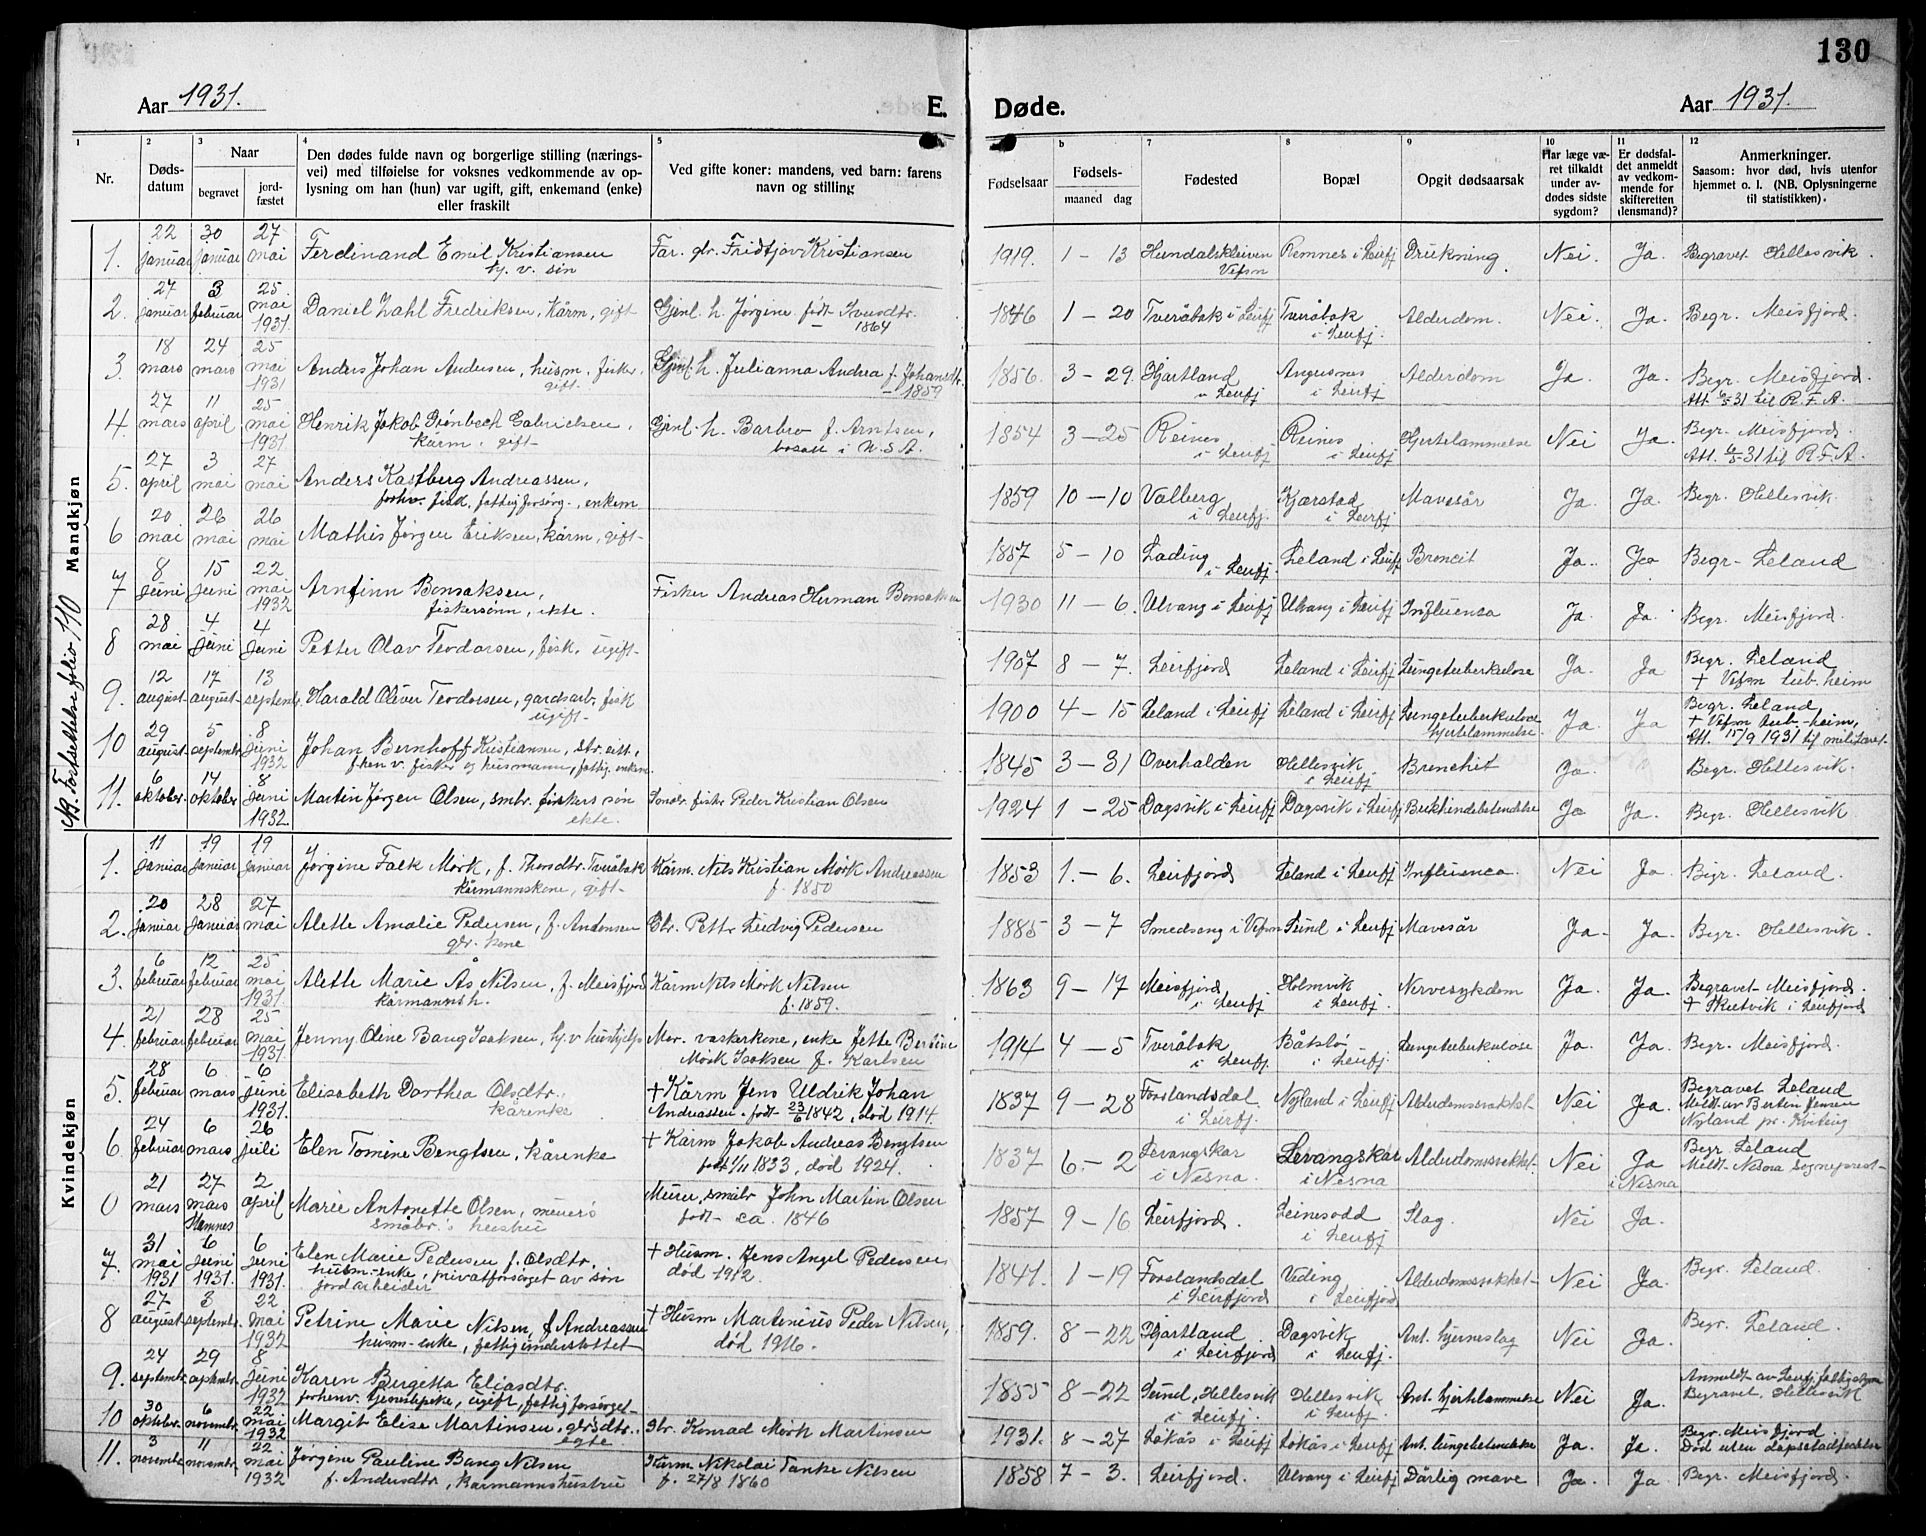 130
Aar 1931.
E. Døde.
Aar 1931.
1 Nr.
2 Døds-datum
3 Naar begravet jord-fæstet
4 Den dødes fulde navn og borgerlige stilling (nærings-
vei) med tilføielse for voksnes vedkommende av op-
lysning om han (hun) var ugift, gift, enkemand (enke)
eller fraskilt
5 Ved gifte koner: mandens, ved barn: farens
navn og stilling
Fødselsaar
b Fødsels-
maaned dag
7 Fødested
8 Bopæl
9 Opgit dødsaarsak
10 Har læge væ-
ret tilkaldt
under av-
dødes sidste
sygdom?
11 Er dødsfal-
det anmeldt
av vedkom-
mende for
skifteretten
(lensmand)?
12 Anmerkninger.
Saasom: hvor død, hvis utenfor
hjemmet o. l. (NB. Oplysningerne
til statistikken).
Mandkjøn
NB. Fortsettelse folio 110
1. 22 januar 30 januar 27 mai Ferdinand Emil Kristiansen Far. gbr. Fridtjov Kristiansen 1919. 1 - 13 Hundalskleiven Remnes i Leirfj Drukning Nei. Ja. Begravet Hellesvik.
hj. v. søn Vefsn
2. 27 januar 3 februar 25 mai 1931 Daniel Zahl Fredriksen, kårm, gift Gjenl. h. Jørgine født 1846 1 - 20 Tveråbak i Leirfj Tveråbak Alderdom. Nei. Ja. Begr. Meisfjord.
1864 i Leirfj.
3. 18 mars 24 mars 25 mai 1931 Anders Johan Andersen, husm. fisker, Gjenl. h. Julianna Andrea f. Johansdtr. 1856. 3 - 29. Hjartland Angersnes Alderdom Ja. Ja. Begr. Meisfjord.
gift. - 1859 i Leirfj i Leirfj Att. 6/5 31 til R.F.A.
4. 27 mars 11 april 25 mai 1931. Henrik Jakob Grønbech Gabrielsen, Gjenl. h. Barbro f. Arntsen, 1854 3 - 25 Reines Reines Hjertelammelse Nei Ja. Begr. Meisfjord.
kårm. gift bosatt i N.S.A. i Leirfj i Leirfj. Att. 6/5 31 til R.F.A.
5. 27 april 3 mai 27 mai Anders Kastberg Andreassen, 1859 10 - 10 Valberg Kjærstad Mavesår Ja Ja. Begr. Hellesvik.
forhv. fisk. fattigforsørg., enkem i Leirfj. i Leirfj
6 20 mai 26 mai 26 mai Mathis Jørgen Eriksen, kårm, gift 1857 5 - 10 Lading Leland i Leirfj Broncit Ja. Ja Begr. Leland
i Leirfj.
7 8 juni 15 juni 22 mai 1932 Arnfinn Bonsaksen, Fisker Andreas Herman Bonsaksen 1930 11 - 6. Ulvang i Leirfj Ulvang i Leirfj Influensa Ja. Ja. Begr. Meisfjord.
fiskersønn, ekte.
8 28 mai 4 juni 4 juni Petter Olav Teodorsen, fisk. ugift 1907 8 - 7. Leirfjord Leland i Leirfj Lungetuberkulose Ja. Ja Begr. Leland
+ Vefsn tub. heim
9. 12 august 17 august 13 septembr. Harald Oliver Teodorsen, gardsarb. fisk 1900 4 - 15 Leland i Leirfj Leland i Leirfj Lungetuberkulose Ja. Ja Begr. Leland
ugift hjertelammelse + Vefsn tub-heim,
Att. 15/9 1931 til militæret
10 29 august 5 septembr 8 juni 1932 Johan Bernhoff Kristiansen, 1845 3 - 31 Overhalden Hellesvik Bronchit Ja. Begr. Hellesvik.
fhenv. fisker og husmann, fattig. enkem. i Leirfj
11. 6 oktober 14 oktober 8 juni 1932 Martin Jørgen Olsen, smbr. fiskers søn fiskr Peder Kristian Olsen 1924 1 - 25 Dagsvik i Leirfj Dagsvik i Leirfj Bukhindebetendelse Ja Ja. Begr. Hellesvik
ekte.
Kvindekjøn
1. 11 januar 19 januar 19 januar Jørgine Falk Mørk, f. Tveråbak Kårm. Nils Kristian Mørk Andreassen 1853 1. - 6. Leirfjord Leland i Leirfj Influensa. Nei Ja. Begr. Leland.
kårmannskone, gift f. 1850
2. 20 januar 28 januar 27 mai Alette Amalie Pedersen, f. Andersen Gbr. Petter Ludvig Pedersen 1885 3 - 7 Smedsang i Vefsn Sund i Leirfj Mavesår Ja. Ja. Begr. Hellesvik.
gbr. kone
3. 6 februar 12 februar 25 mai 1931. Alette Marie Ås Nilsen, f. Meisfjord Kårm Nils Mørk Nilsen 1863 9 - 17 Meisfjord Holmvik Nervesykdom Ja. Ja. Begravet Meisfjord.
kårmannsh. f. 1859. i Leirfj i Leirfj. + Skutvik i Leirfjord
4. 21 februar 28 februar 25 mai 1931. Jenny Oline Bang Isaksen, hj.v Mor. vaskerkone, enke Jette Bersine 1914 4 - 5 Tveråbak Båtslø Lungetuberkulose Ja. Ja Begr. Meisfjord.
Mørk Isaksen f. Karlsen i Leirfj. i Leirfj.
5. 28 februar 6 mars 6 juni 1931. Elisabeth Dorthea Olsdtr. + Kårm Jens Uldrik Johan 1837 9 - 28 Forslandsdal Nyland i Leirfj Alderdomssvakhet Nei Ja. Begravet Leland
kårenke Andreassen. født 23/6 1842, død 1914. i Leirfj. Meldt av Bertin Jensen
Nyland pr. Kviting
6. 24 februar 6 mars 26 juli Elen Tomine Bengtsen, kårenke + Kårm Jakob Andreas Bengtsen 1837 6 - 2 Levangskar Levangskar Alderdomssvakhet Nei Ja Begr. Leland
født 1/11 1833, død 1924. i Nesna. i Nesna i Nesna Meldt Nesna sogneprest
0 21 mars 27 mars Hemnes 2 april Marie Antonette Olsen, murer's Murer, småbr John Martin Olsen 1857 9 - 16 Leirfjord. Leinesodd Slag. Nei Ja.
småbr.'s hustru født ca. 1846 i Leirfj
7. 31 mai 1931 6 juni 1931. 6 juni 1931. Elen Marie Pedersen f. Olsdtr. + Husm. Jens Angel Pedersen, 1841. 1 - 19 Forslandsdal Veding Alderdomssvakhet Nei Ja. Begr. Leland.
husm-enke, privatforsørget av søn død 1912. i Leirfjord i Leirfjord
jordarbeider
8 27 august 3 septembr. 22 mai 1932 Petrine Marie Nilsen, f Andreassen + Husm Martenius Peder Nilsen, 1859. 8 - 22 Hjartland Dagsvik Ant. hjerneslag Nei Ja. Begr. Leland.
husm-enke, fattigunderstøttet død 1916. i Leirfjord i Leirfj.
9. 24 septembr 29 septembr 8 juni 1932 Karen Birgitta Eliasdtr. 1855 8 - 22 Sund, Hellesvik Hellesvik Ant. hjertelammelse Nei Ja. Anmeldt av Leirfj fattigstyre
forhenv. tjenestepike, ugift, fattigforsørget i Leirfj. i Leirfj. Begravet, Hellesvik
10 30 oktober. 6 novembr. 22 mai 1932 Margit Elise Martinsen, gbrsdtr. Gbr. Konrad Mørk Martinsen 1931. 8 - 27 Løkås i Leirfj Løkås i Leirfj Ant. lungebetendelse Ja. Ja. Begr. Meisfjord.
egte. Død uten dåpsstadfestelse
11. 3 novembr 11 novembr. 22 mai 1932 Jørgine Pauline Bang Nilsen Kårm. Nikolai Tanke Nilsen 1858 7 - 3. Leirfjord. Ulvang i Leirfj Dårlig mave Ja Ja. Begr. Meisfjord.
f. Andersdtr, kårmannshustru f. 27/8 1860